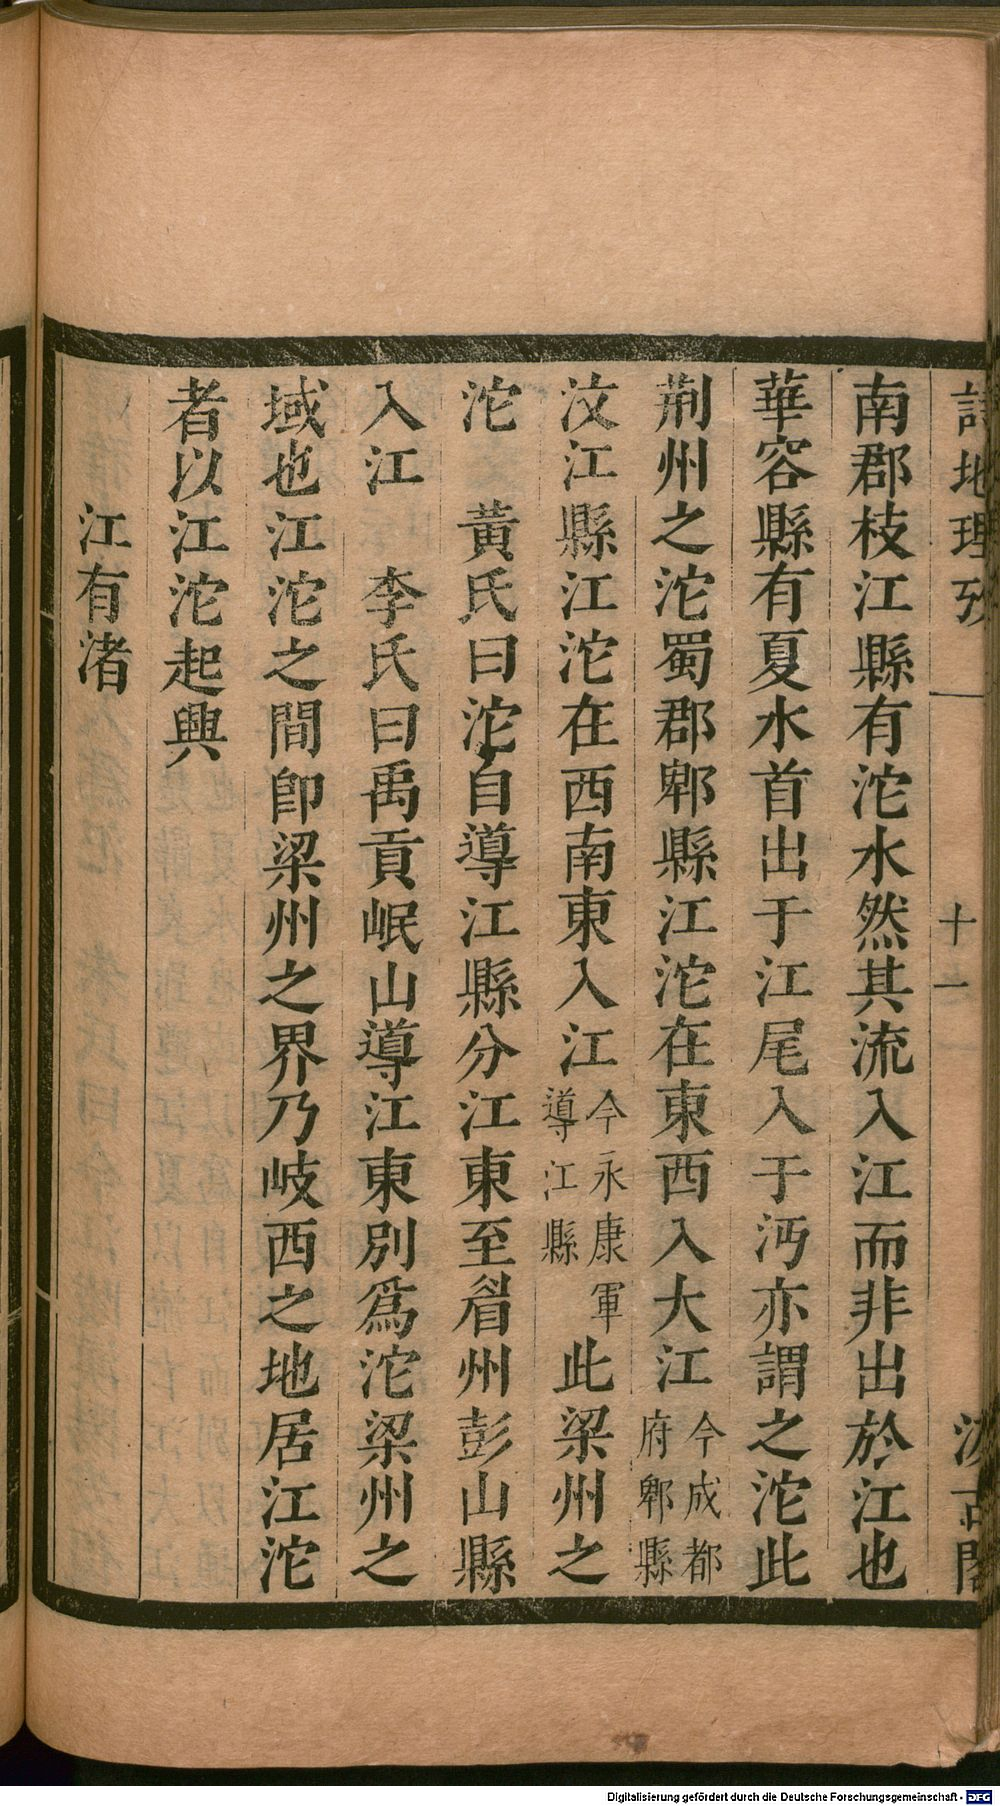 詩地理攷 一 十一 汲古閣
南郡枝江縣有沱水然其流入江而非出於江也
華容縣有夏水首出于江尾入于沔亦謂之沱此
荆州之沱蜀郡郫縣江沱在東西入大江今成都府郫縣
汶江縣江沱在西南東入江今永康軍導江縣此梁州之
沱 黃氏曰沱自導江縣分江東至眉州彭山縣
入江 李氏曰禹貢岷山導江東別爲沱梁州之
域也江沱之間卽梁州之界乃岐西之地居江沱
者以江沱起興
江有渚
Digitalisierung gefördert durch die Deutsche Forschungsgemeinschaft - DFG